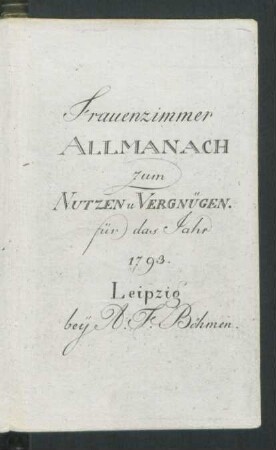 Frauenzimmer
ALLMANACH
zum
NUTZEN u VERGNÜGEN.
für das Jahr
1793.
Leipzig
bey A. F. Böhmen.